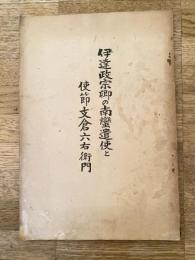 伊達政宗卿の南蠻遣使と
使節支倉六右衛門